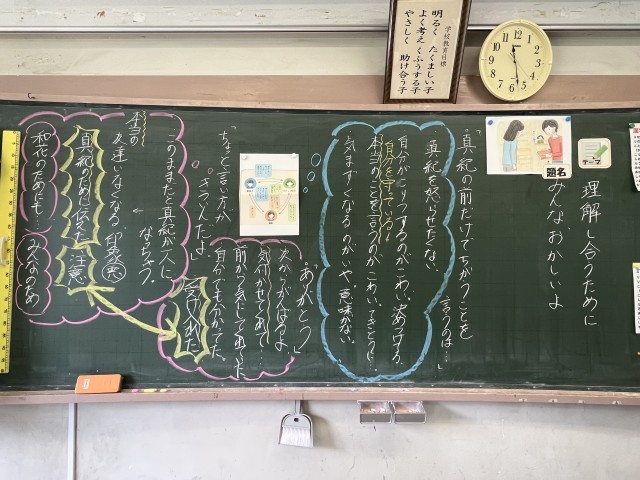 学校教育目標
明るく たくましい子
よく考え くふうする子
やさしく 助け合う子
テーマ
理解し合うために
題名
みんな、おかしいよ
「真紀の前だけでちがうことを
言うのは…」
真紀を怒らせたくない。
自分がこりつするのがこわい。
自分を守っている。
本当のことを言うのがこわい。
気まずくなるのがいや。意味がない。
「なっと言い方が
きつくんだよ」
「ありがとう」
次からがんばるよ
気付かせてくれて…
前から気じてれてた
自分でも分かってた。
受け入れた
このままだと真紀が一人に
ならちゃう。
本当の
友達いなくなる
印象悪
真紀のために伝えた
注意
和花のためにも…
みんなのため